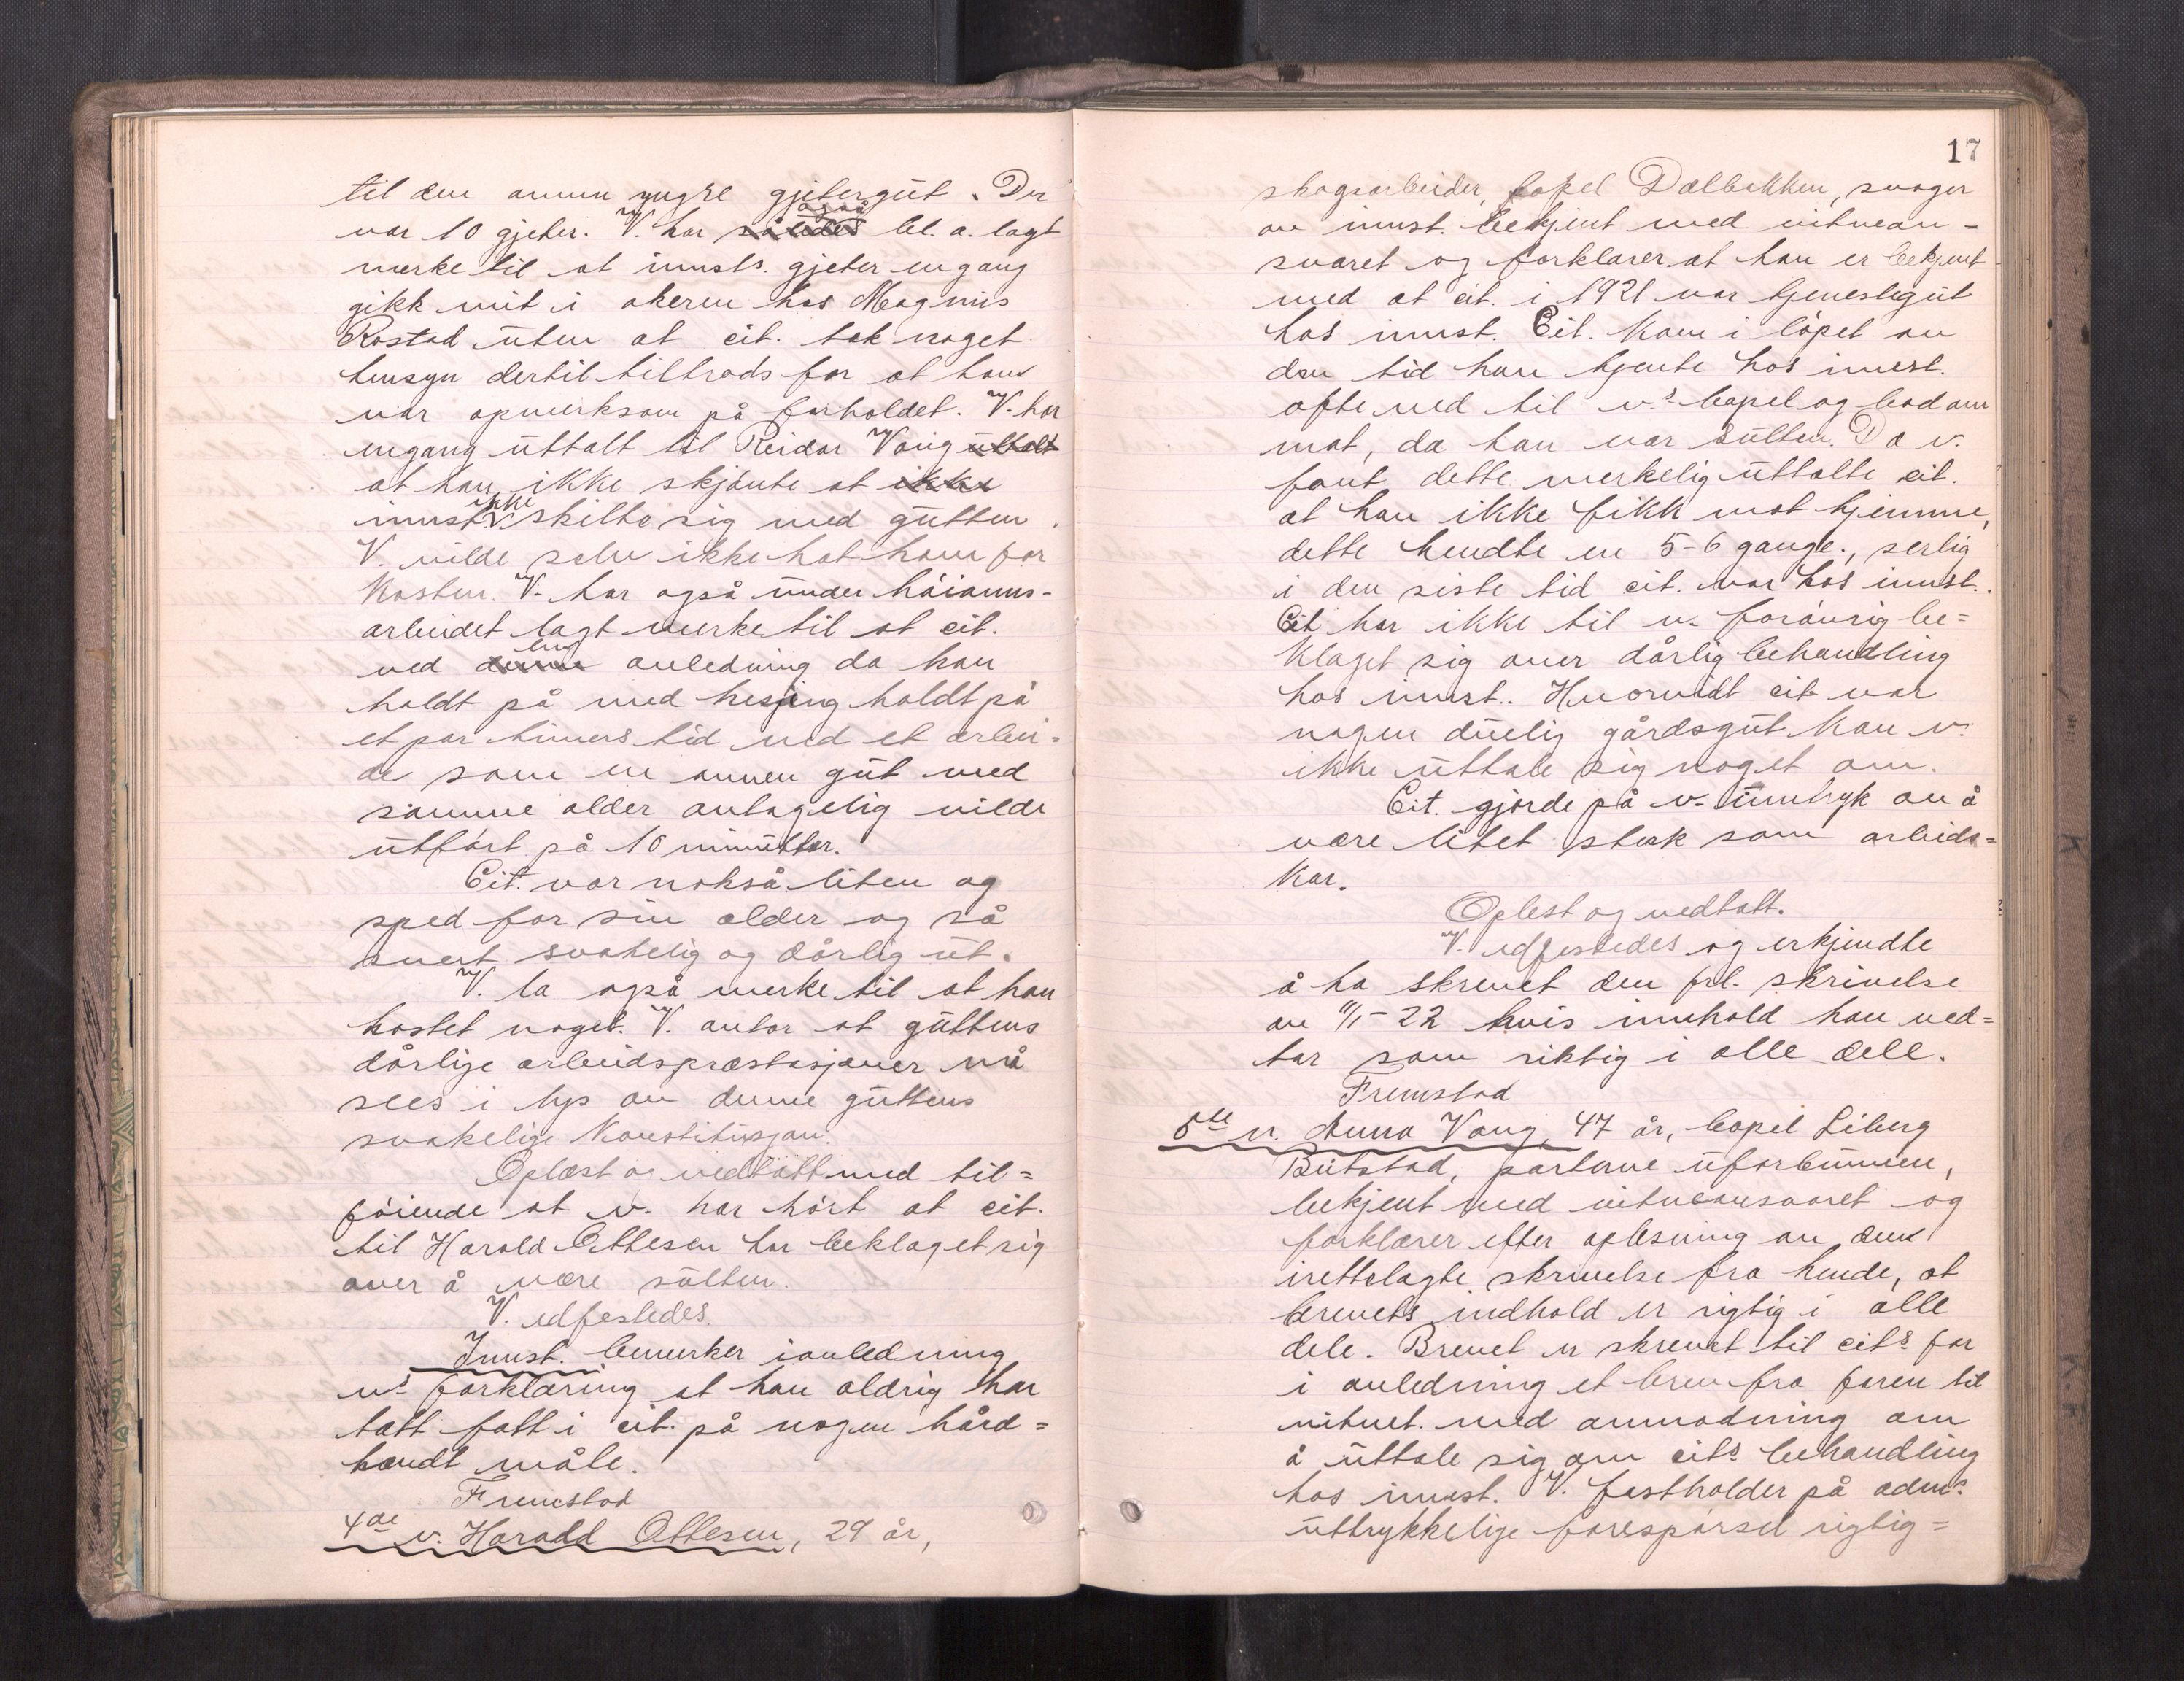 til en annen yngre gjetergut. Der
også
var 10 gjeter. V. har således bl. a. lagt
merke til at innsts. gjeter engang
gikk mit i akeren hos Magnus
Rostad uten at cit. tok noget
hensyn dertil tiltrods for at hans
var opmerksom på forholdet. V. har
engang uttalt til Reidar Vang uttalt
at han ikke skjønte at ikke
ikke
innst. skilte sig med gutten.
V. vilde selv ikke hat ham for
kosten. V. har også under høianns-
arbeidet lagt merke til at cit.
eng
ved denne anledning da han
holdt på med hesjing holdt på
et par timers tid med et arbei-
de som en annen gut med
samme alder antagelig vilde
utført på 10 minutter.
Cit. var nokså liten og
sped for sin alder og så
svert svakelig og dårlig ut.
V. la også merke til at han
hostet noget. V. antar at guttens
dårlige arbeidspræstasjoner må
sees i lys av denne guttens
svakelige Konstitusjon.
Oplæst og vedtatt med til=
føiende at v. har hørt at cit.
til Harald Ottesen har beklaget sig
over å være sulten.
V. edfestedes.
Innst. bemerker i anledning
v.s forklaring at han aldrig har
tatt fatt i cit. på nogen hård=
hendt måte.
Fremstod
4de v. Harald Ottesen, 29 år,
17
skogsarbeider, bopel Dælbakken, svoger
av innst. bekjent med vitnean-
svaret og forklarer at han er bekjent
med at cit. i 1921 var tjenestegut
hos innst. Cit. kom i løpet av
den tid han tjente hos innst.
ofte ned til v.s bopel og bad om
mat, da han var sulten. Da v.
fant dette merkelig uttalte cit.
at han ikke fikk mat hjemme,
dette hendte en 5-6 gange, serlig
i den siste tid cit. var hos innst.
Cit har ikke til v. forøvrig be=
klaget sig over dårlig behandling
hos innst. Hvorvidt cit var
nogen duelig gårdsgut kan v.
ikke uttale sig noget om.
Cit. gjorde på v. inntryk av å
være litet sterk som arbeids=
kar.
Oplest og vedtatt.
V. edfestedes og erkjendte
å ha skrevet den frl. skrivelse
av 11/1-22 hvis innhold han ved=
tar som riktig i alle dele.
Fremstod
5te v. Anna Vang, 47 år, bopel Liberg
Butstad, parterne uforbunnen,
bekjent med vitneansvaret og
forklarer efter oplesning av den
irettelagte skrivelse fra hende, at
brevets indhold er rigtig i alle
dele. Brevet er skrevet til cits far
i anledning et brev fra faren til
vitnet med anmodning om
å uttale sig om cits behandling
hos innst. V. fastholder på adms.
uttrykkelige forespørsel rigtig=